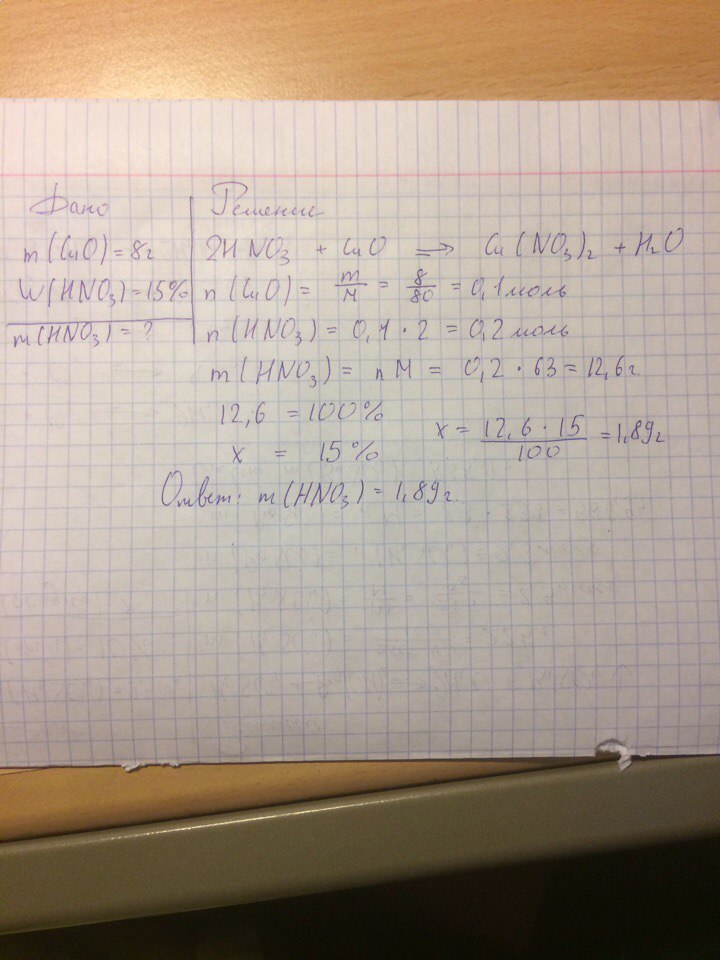 Дано
m(CuO)=8г
W(HNO₃)=15%
m(HNO₃)=?
Решение
2HNO₃ + CuO ⇒ Cu(NO₃)₂ + H₂O
n(CuO)= m/M = 8/80 = 0,1 моль
n(HNO₃)= 0,1·2 = 0,2 моль
m(HNO₃)= nM = 0,2·63=12,6г
12,6 =100%
x = 15%
x = 12,6·15/100 =1,89г
Ответ: m(HNO₃)=1,89г.